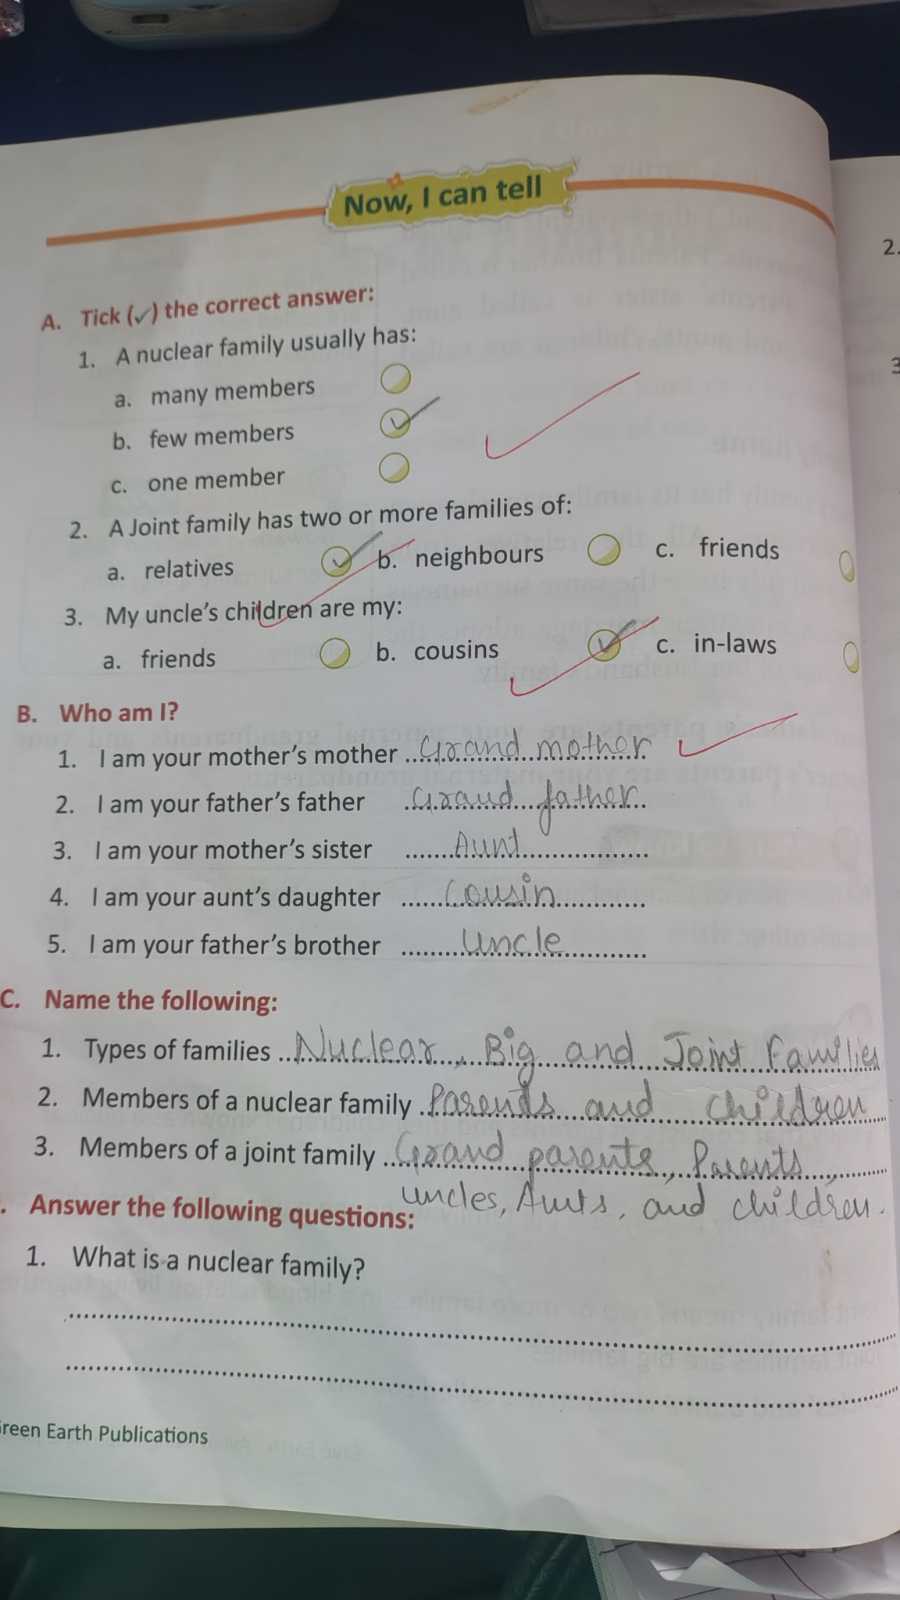 Now, I can tell
A. Tick (✓) the correct answer:
1. A nuclear family usually has:
a. many members
b. few members
c. one member
2. A Joint family has two or more families of:
a. relatives b. neighbours c. friends
3. My uncle's children are my:
a. friends b. cousins c. in-laws
B. Who am I?
1. I am your mother's mother Grand mother
2. I am your father's father Grand father
3. I am your mother's sister Aunt
4. I am your aunt's daughter Cousin
5. I am your father's brother Uncle
C. Name the following:
1. Types of families Nuclear, Big and Joint Families
2. Members of a nuclear family Parents and children
3. Members of a joint family Grand parents, Parents,
uncles, Aunts, and children.
. Answer the following questions:
1. What is a nuclear family?
Green Earth Publications
2.
3